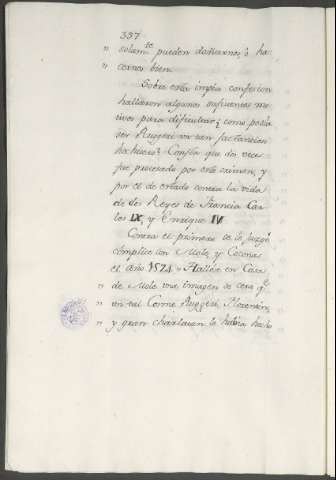 337
" solam.te pueden dañarnos, ò ha
" cernos bien.
Sobre esta impia confesion
hallaron algunos suficientes mo
tivos para dificultar; como podia
ser Ruggeri un tan
hechicero? Consta que dos veces
fue procesado por este crimen, y
por el de estado contra la vida
de los Reyes de Francia Car
los IX, y Enrique IV
Contra el primero se le juzgó
cómplice con Mole, y Coconas
el año 1574 " Hallóse en Casa
" de Mole una imagen de cera q.e
" un tal Cosme Ruggeri, Florentin,
" y gran charlatan le habia hecho